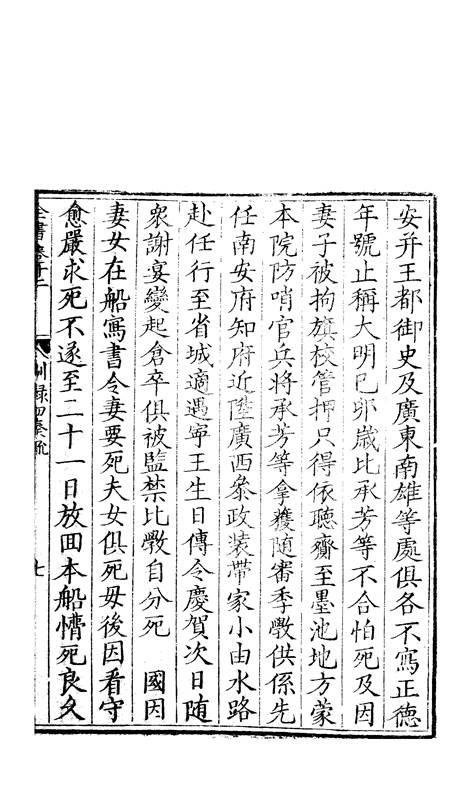 安并王都御史及廣東南雄等處俱各不寫正德
年號止稱大明己卯歲比承芳等不合怕死及因
妻子被拘旗校管押只得依聽齎至墨池地方蒙
本院防哨官兵將承芳等拿獲隨審季斆供係先
任南安府知府近陞廣西叅政裝帶家小由水路
赴任行至省城適遇寧王生日傳令慶賀次日隨
衆謝宴變起倉卒俱被監禁比斆自分死　國因
妻女在船寫書令妻要死夫女俱死毋後因看守
愈嚴求死不遂至二十一日放回本船懵死良久
全書卷十二
別錄四奏疏
七